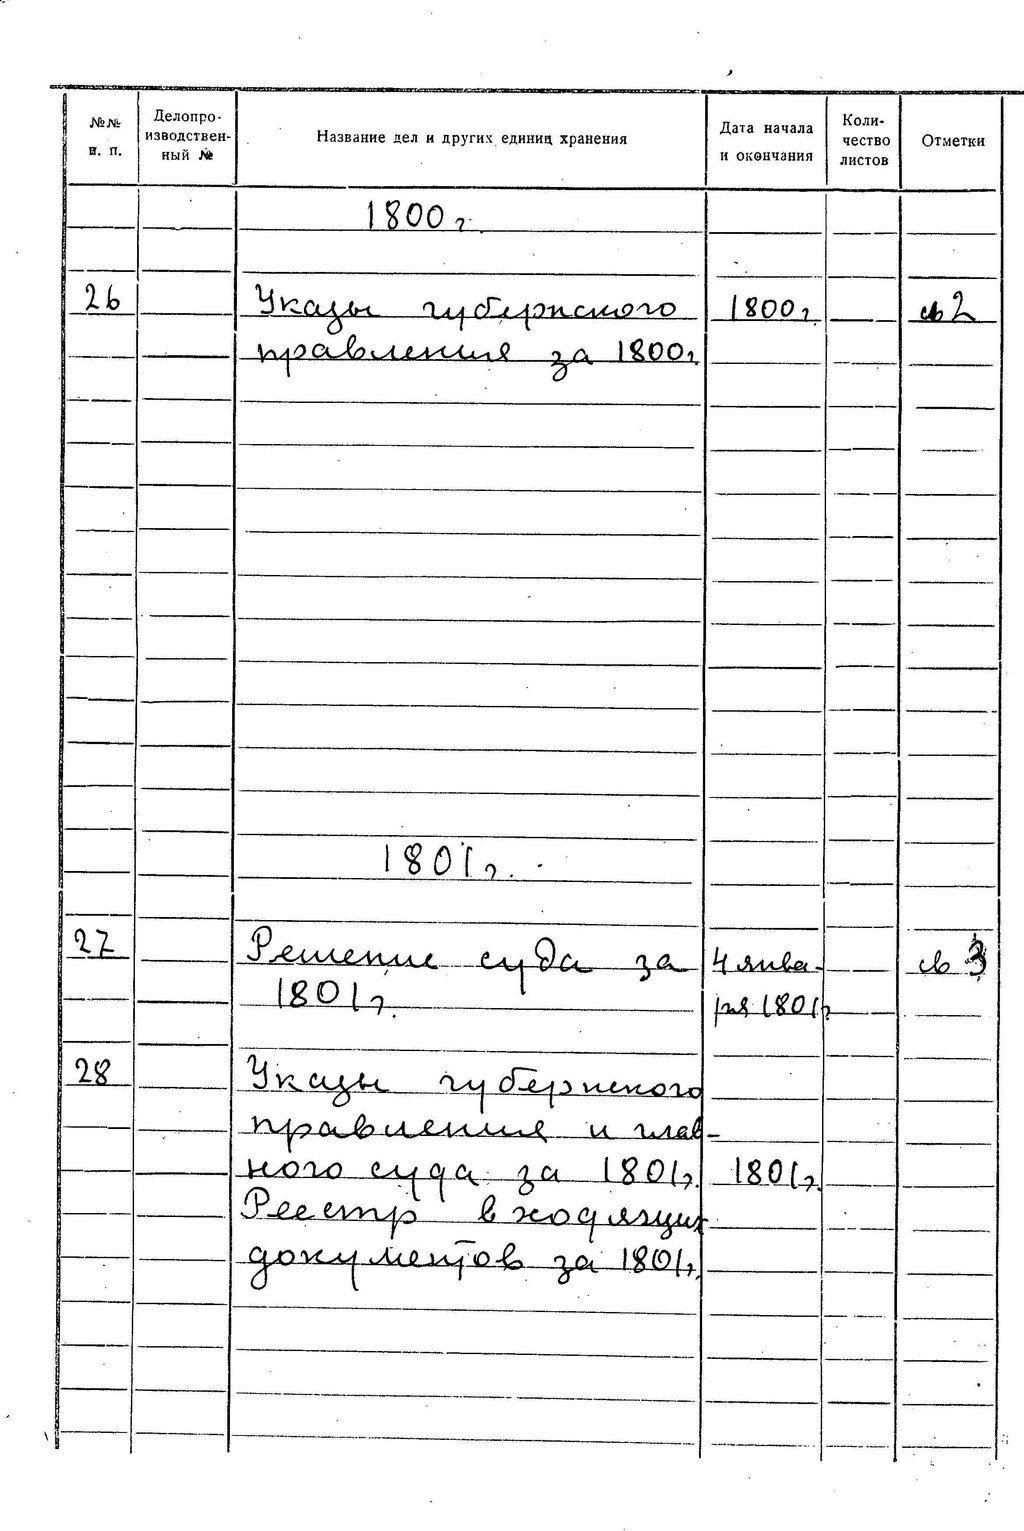 №№ п. п.
Делопроизводственный №
Название дел и других единиц хранения
Дата начала и окончания
Количество листов
Отметки
1800 г.
26 Указы губернского 1800 г. св 2
правления за 1800 г.
1801 г.
27 Решение суда за 4 янва- св 3
1801 г. ря 1801 г.
28 Указы губернского
правления и глав-
ного суда за 1801 г. 1801 г.
Реестр входящих
документов за 1801 г.